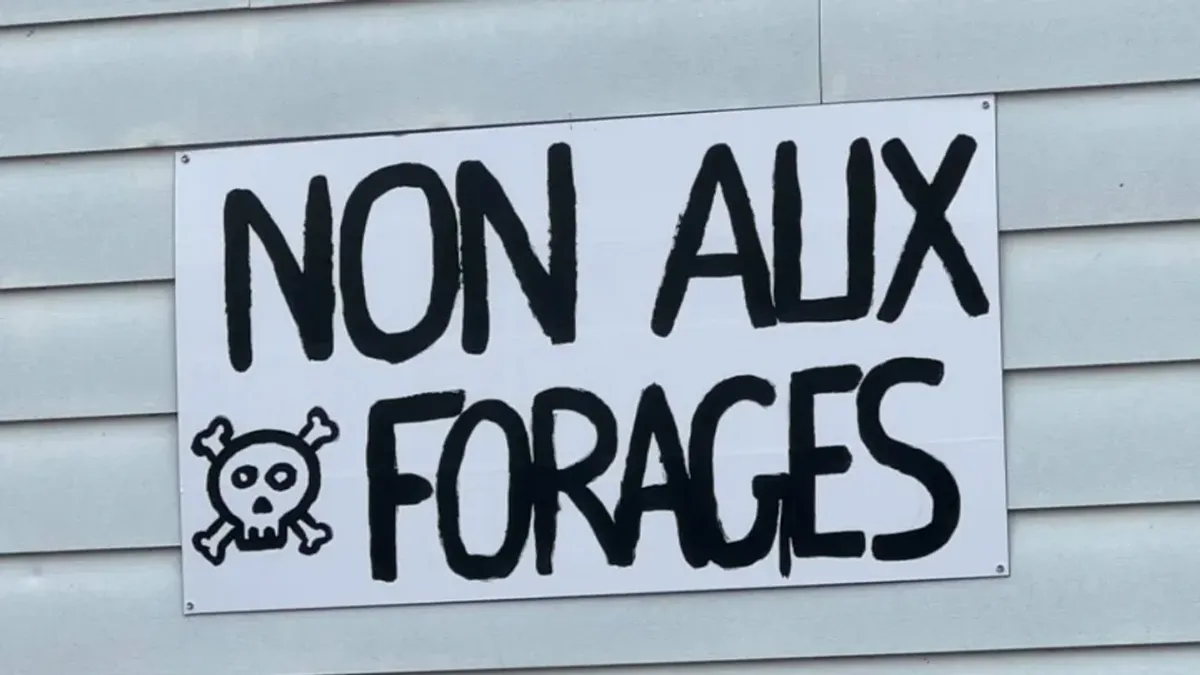 NON AUX
FORAGES